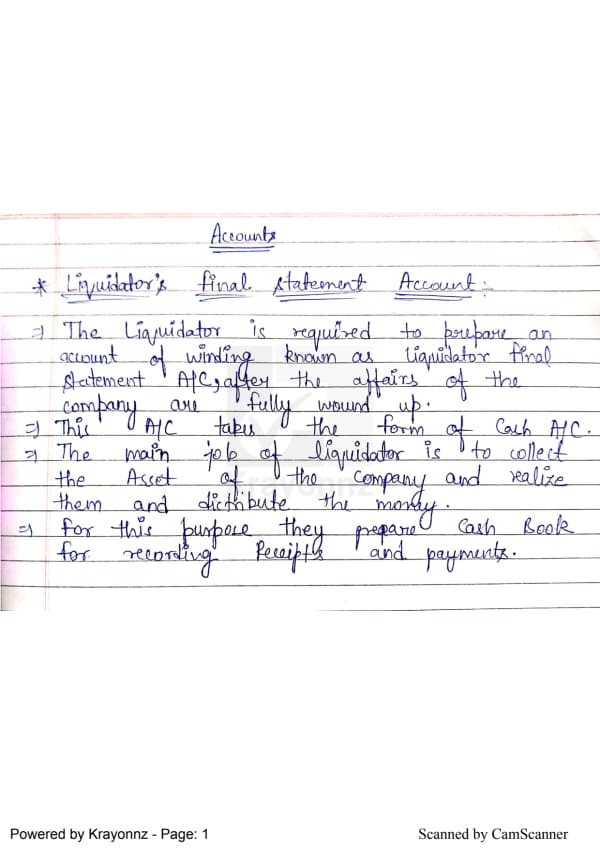 Accounts
* Liquidator's final statement Account :-
⇒ The Liquidator is required to prepare an
account of winding known as liquidator final
statement A/C, after the affairs of the
company are fully wound up.
⇒ This A/C takes the form of Cash A/C.
⇒ The main job of liquidator is to collect
the Asset of the company and realize
them and dictribute the money.
⇒ for this purpose they prepare Cash Book
for recording Receipts and payments.
Krayonnz
Powered by Krayonnz - Page: 1 Scanned by CamScanner